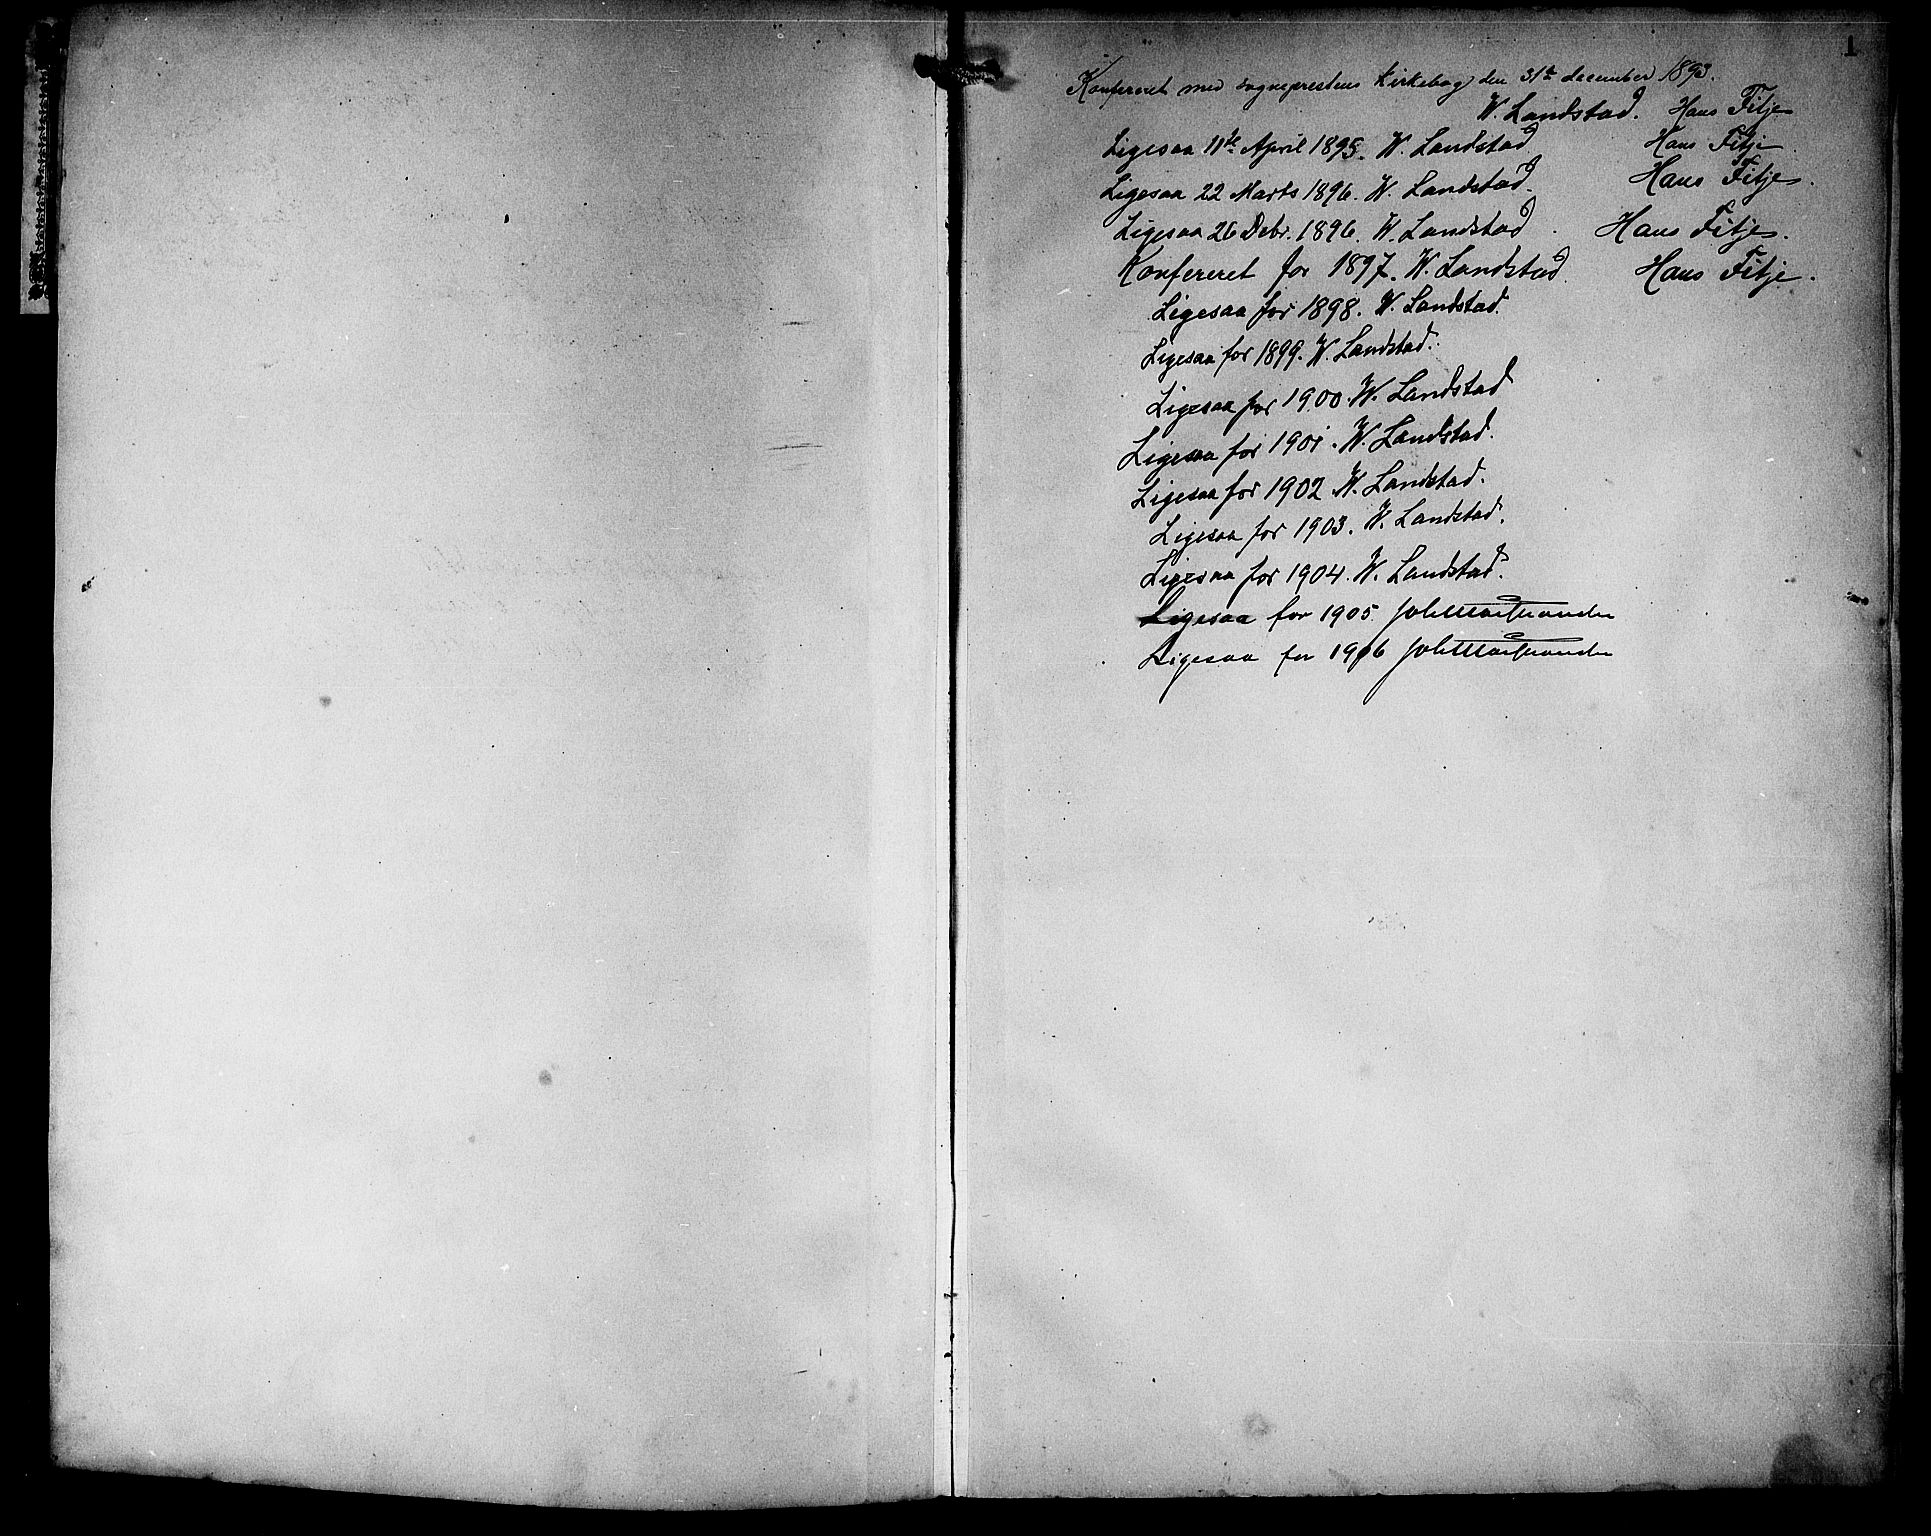 1
Konfereret med sogneprestens Kirkebog den 31te december 1893.
W. Landstad. Hans Fitje
Ligesaa 11te April 1895. W. Landstad Hans Fitje
Ligesaa 22 Marts 1896. W. Landstad. Hans Fitje.
Ligesaa 26 Debr. 1896. W. Landstad. Hans Fitje.
Konfereret for 1897. W. Landstad. Hans Fitje.
Ligesaa for 1898. W. Landstad.
Ligesaa for 1899. W. Landstad.
Ligesaa for 1900. W. Landstad
Ligesaa for 1901. W. Landstad.
Ligesaa for 1902 W. Landstad.
Ligesaa for 1903. W. Landstad.
Ligesaa for 1904. W. Landstad.
Ligesaa for 1905.
Ligesaa for 1906